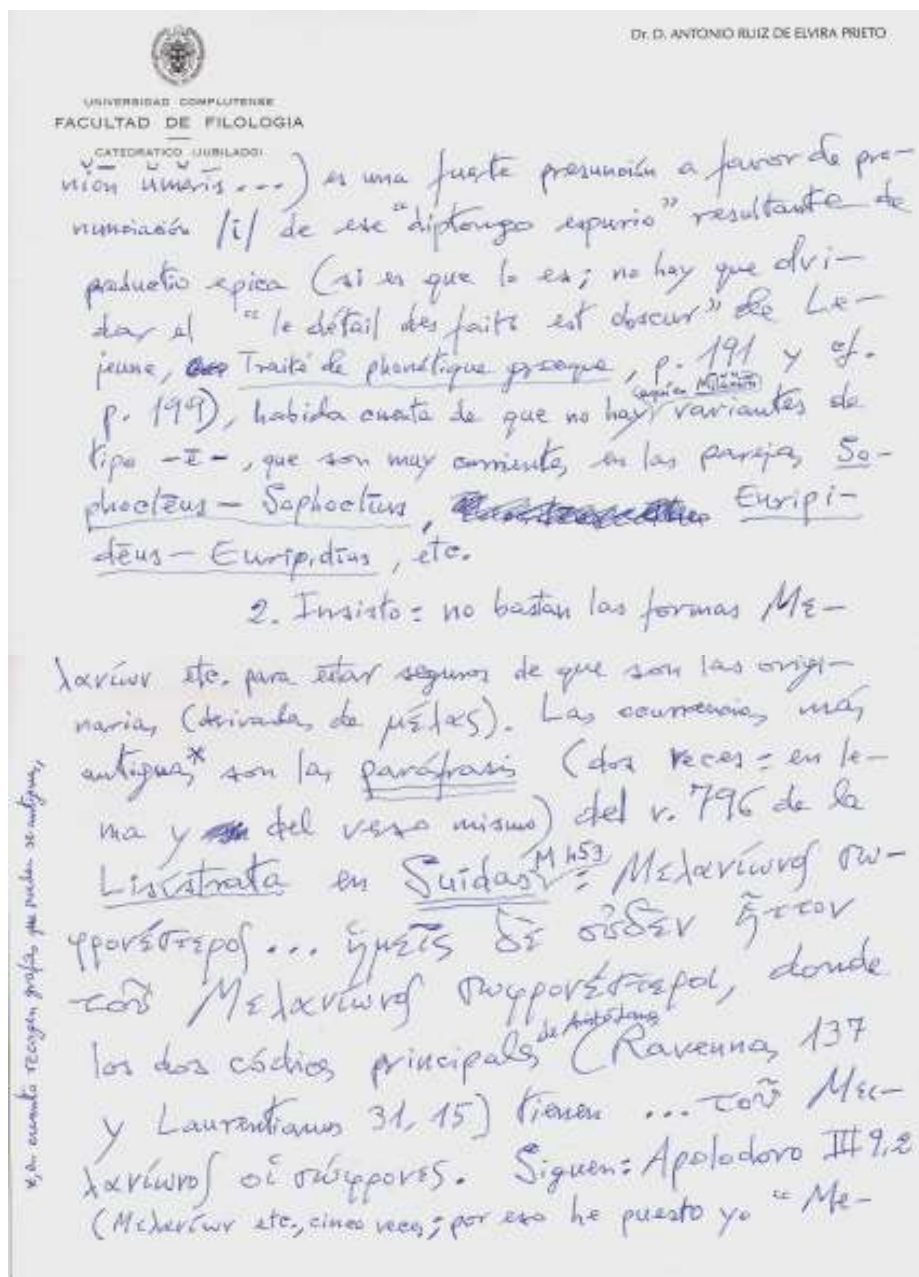 Dr. D. ANTONIO RUIZ DE ELVIRA PRIETO
UNIVERSIDAD COMPLUTENSE
FACULTAD DE FILOLOGIA
CATEDRATICO (JUBILADO)
niōn umerīs ...) es una fuerte presunción a favor de pro-
nunciación /i/ de ese "diptongo espurio" resultante de
productio epica (si es que lo es; no hay que olvi-
dar el "le détail des faits est obscur" de Le-
jeune, Traité de phonétique grecque, p. 191 y cf.
p. 199), habida cuenta de que no hay variantes de
tipo -ē-, que son muy corrientes en las parejas So-
phoclēus - Sophoclīus, Euripi-
dēus - Euripidīus, etc.
2. Insisto: no bastan las formas Με-
λανίων etc. para estar seguros de que son las origi-
narias (derivadas de μέλας). Las ocurrencias más
antiguas* son las paráfrasis (dos veces: en le-
ma y del verso mismo) del v. 796 de la
Lisístrata en Suidas M 453: Μελανίωνος σω-
φρονέστερος ... ἡμεῖς δὲ οὐδὲν ἧττον
τοῦ Μελανίωνος σωφρονέστεροι, donde
los dos códices principales de Aristófanes (Ravennas 137
y Laurentianus 31, 15) tienen ... τοῦ Με-
λανίωνος οἱ σώφρονες. Siguen: Apolodoro III 9,2
(Μελανίων etc., cinco veces; por eso he puesto yo "Me-
*, en cuanto recogen grafías que pueden ser antiguas,